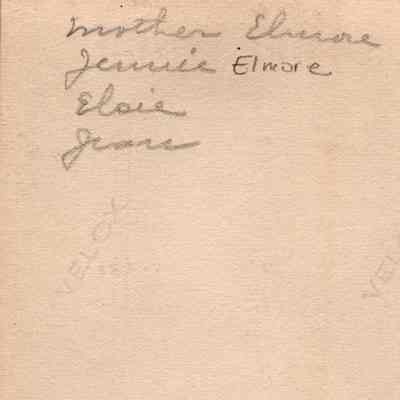 Mother Elmore
Jennie Elmore
Elsie
Jean
VELOX
VELO